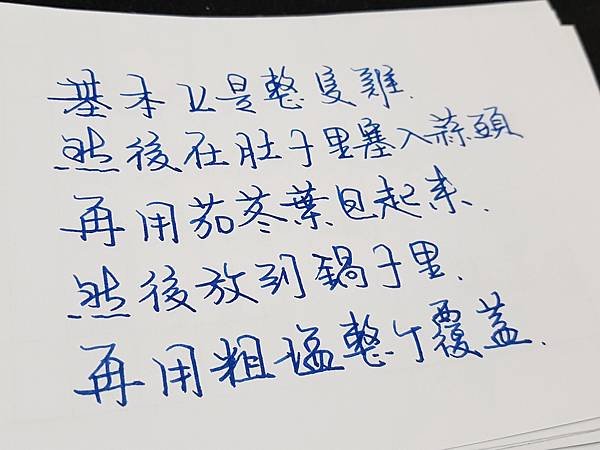 基本上是整隻雞.
然後在肚子里塞入蒜頭
再用茄苳葉包起來.
然後放到鍋子里.
再用粗塩整个覆蓋.